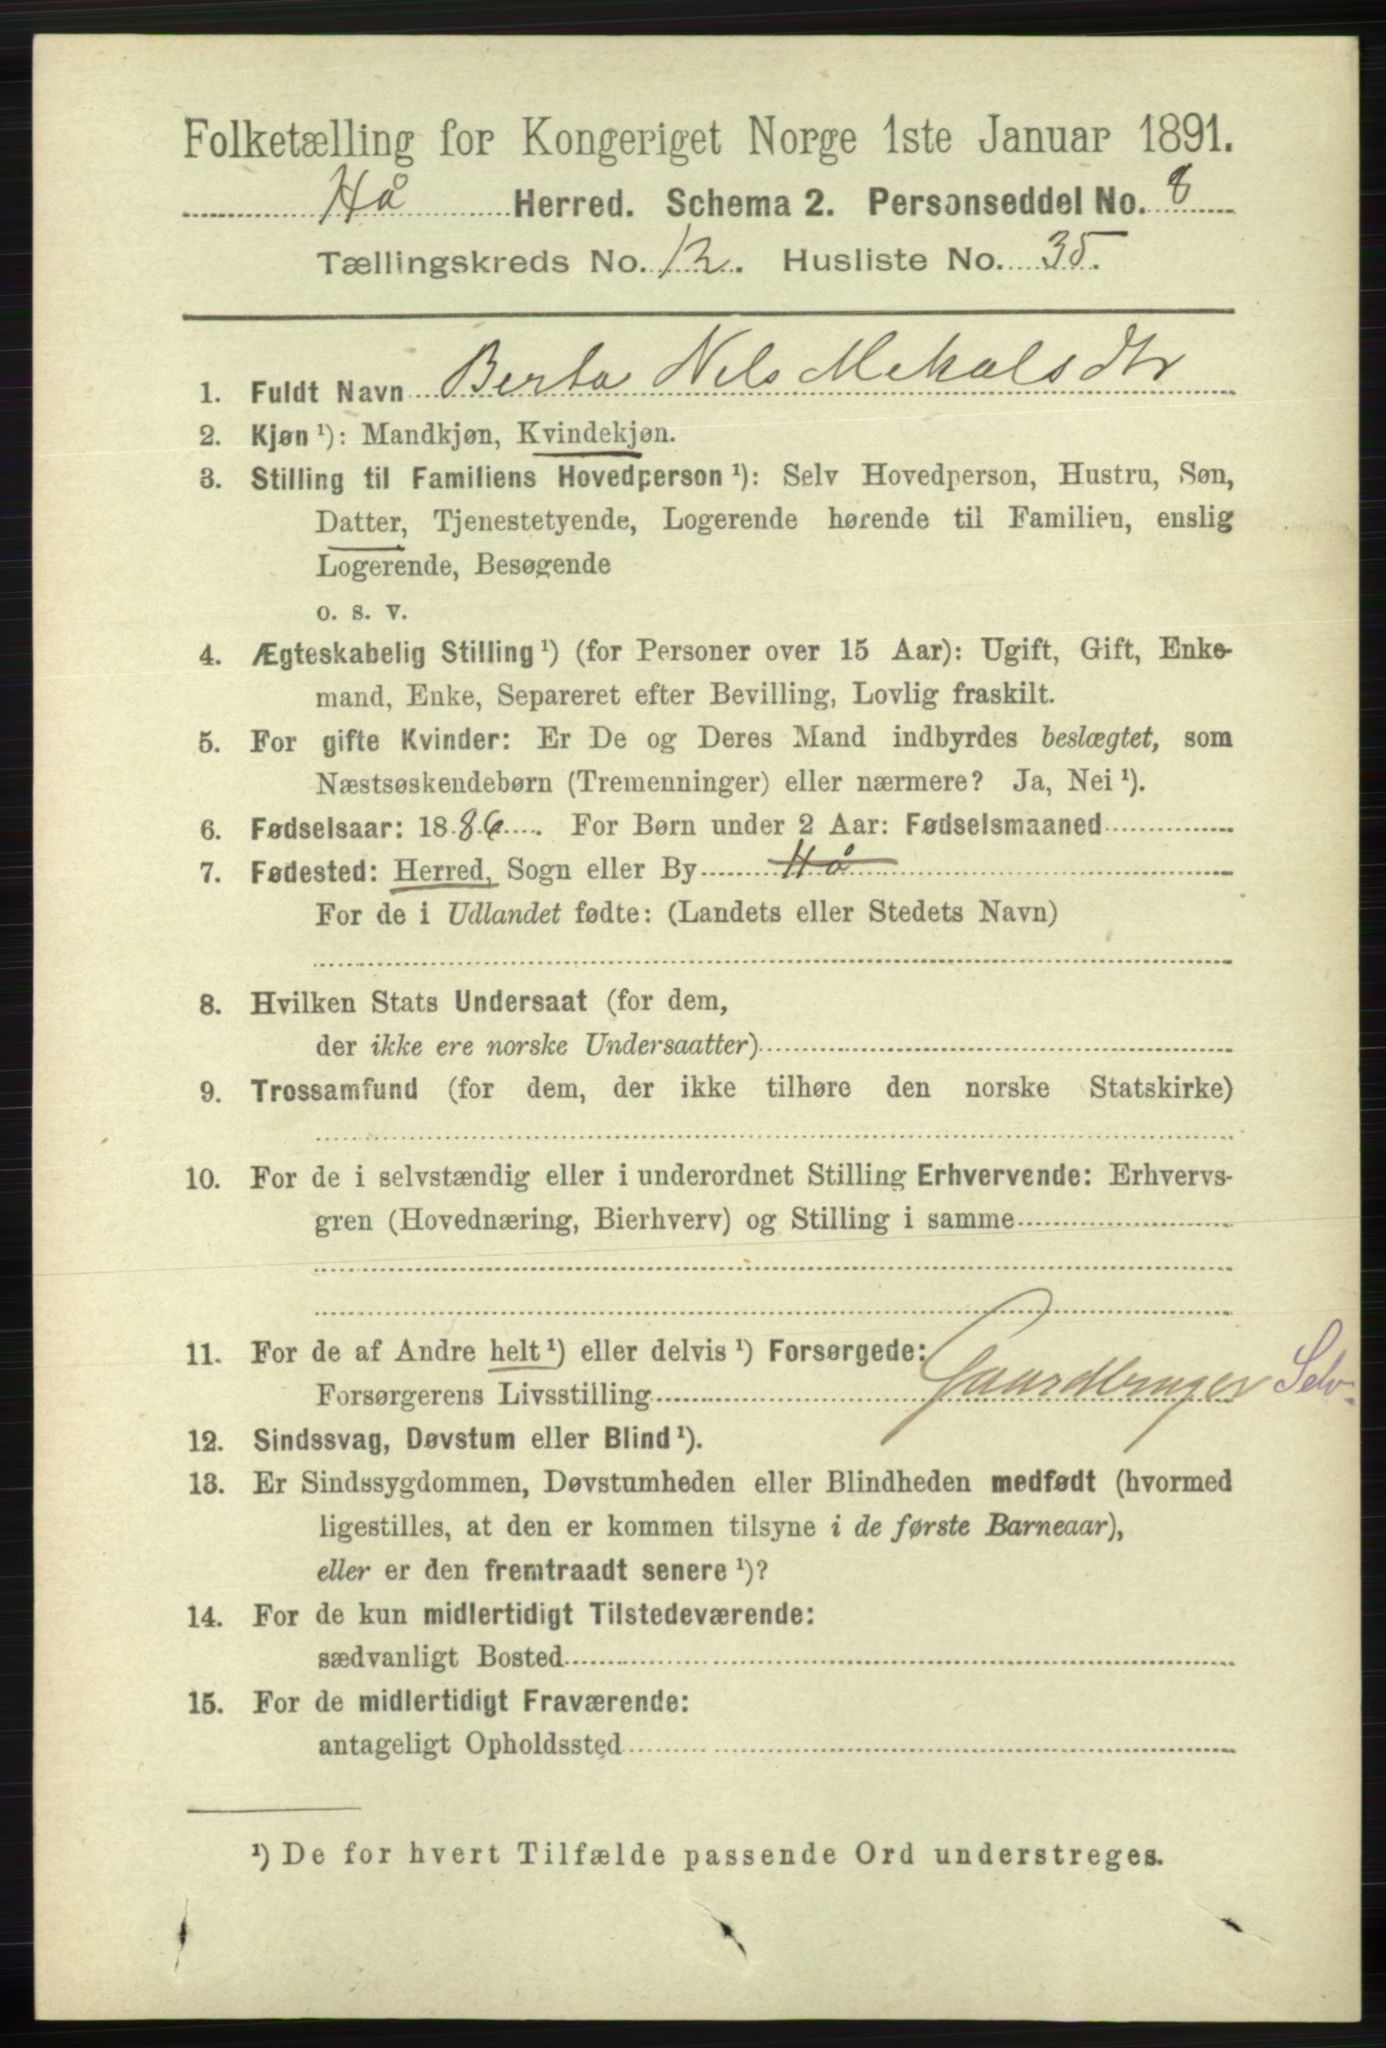 Folketælling for Kongeriget Norge 1ste Januar 1891.
Hå Herred. Schema 2. Personseddel No. 8
Tællingskreds No. 12. Husliste No. 35.
1. Fuldt Navn Berta Nels Mekals dtr
2. Kjøn ¹): Mandkjøn, Kvindekjøn.
3. Stilling til Familiens Hovedperson ¹): Selv Hovedperson, Hustru, Søn,
Datter, Tjenestetyende, Logerende hørende til Familien, enslig
Logerende, Besøgende
o. s. v.
4. Ægteskabelig Stilling ¹) (for Personer over 15 Aar): Ugift, Gift, Enke-
mand, Enke, Separeret efter Bevilling, Lovlig fraskilt.
5. For gifte Kvinder: Er De og Deres Mand indbyrdes beslægtet, som
Næstsøskendebørn (Tremenninger) eller nærmere? Ja, Nei ¹).
6. Fødselsaar: 1886. For Børn under 2 Aar: Fødselsmaaned
7. Fødested: Herred, Sogn eller By Hå
For de i Udlandet fødte: (Landets eller Stedets Navn)
8. Hvilken Stats Undersaat (for dem,
der ikke ere norske Undersaatter)
9. Trossamfund (for dem, der ikke tilhøre den norske Statskirke)
10. For de i selvstændig eller i underordnet Stilling Erhvervende: Erhvervs-
gren (Hovednæring, Bierhverv) og Stilling i samme
11. For de af Andre helt ¹) eller delvis ¹) Forsørgede:
Forsørgerens Livsstilling Gaardbruger Selv.
12. Sindssvag, Døvstum eller Blind ¹).
13. Er Sindssygdommen, Døvstumheden eller Blindheden medfødt (hvormed
ligestilles, at den er kommen tilsyne i de første Barneaar),
eller er den fremtraadt senere ¹)?
14. For de kun midlertidigt Tilstedeværende:
sædvanligt Bosted
15. For de midlertidigt Fraværende:
antageligt Opholdssted
¹) De for hvert Tilfælde passende Ord understreges.